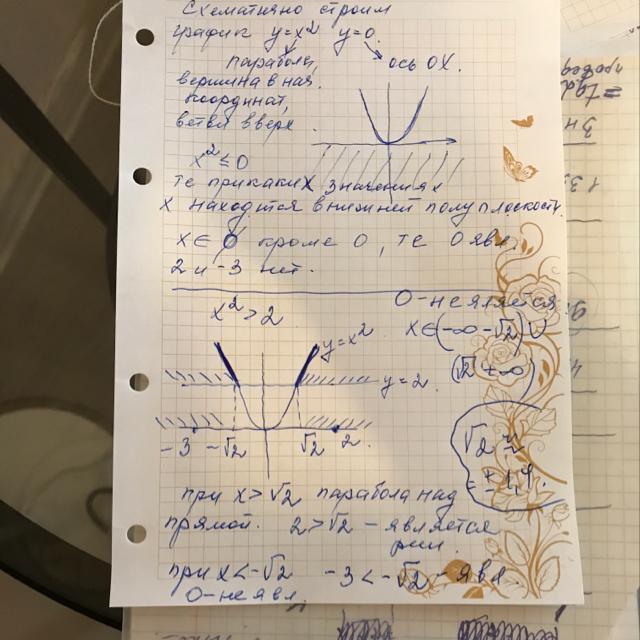 Схематично строим
график y=x² y=0.
парабола, ось OX.
вершина в нач.
координат,
ветви вверх.
x² ≤ 0
те при каких значениях
x находится в нижней полуплоскости.
x ∈ ∅ кроме 0, те 0 явл,
2 и -3 нет.
0-не является
x² > 2
x ∈ (-∞ -√2) ∪
(√2 +∞)
y=x²
y=2.
-3 -√2 √2 2.
√2 ≈
± 1,4.
при x > √2 парабола над
прямой. 2 > √2 - является
реш.
при x < -√2 -3 < -√2 - явл
0-не явл.